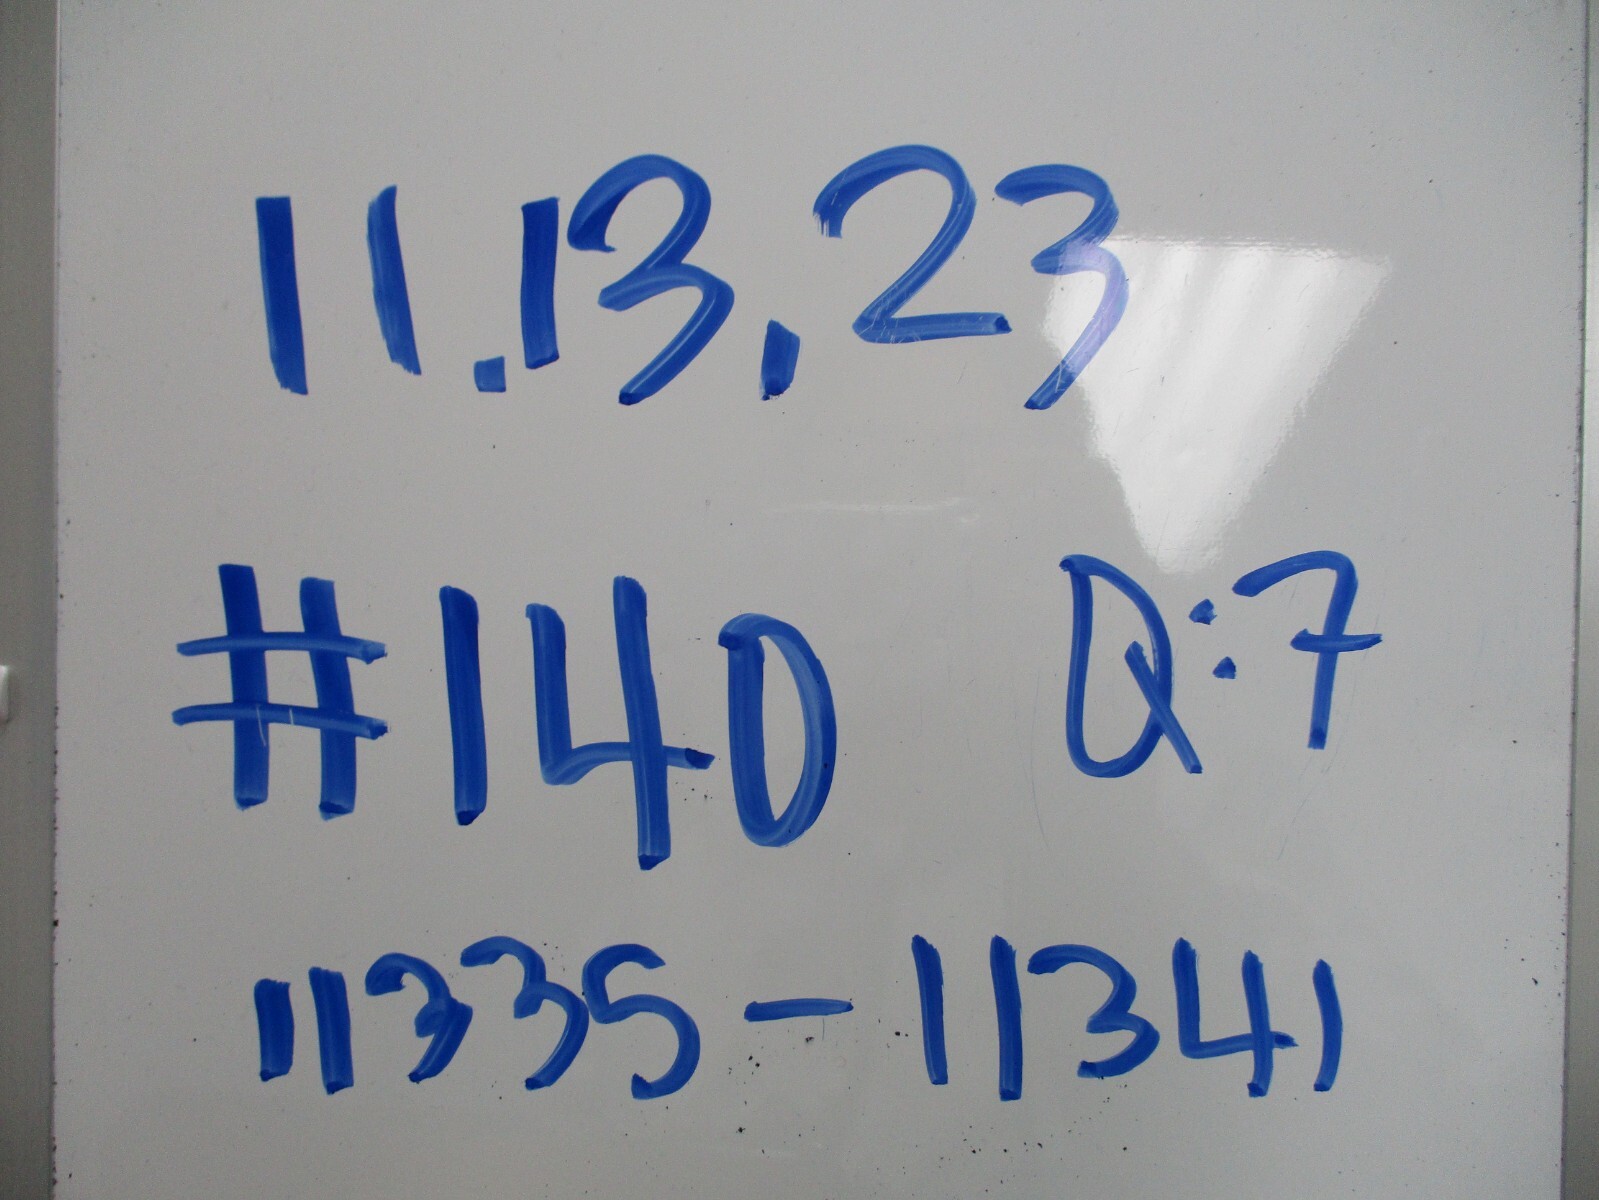 11.13.23
#140 Q:7
11335-11341